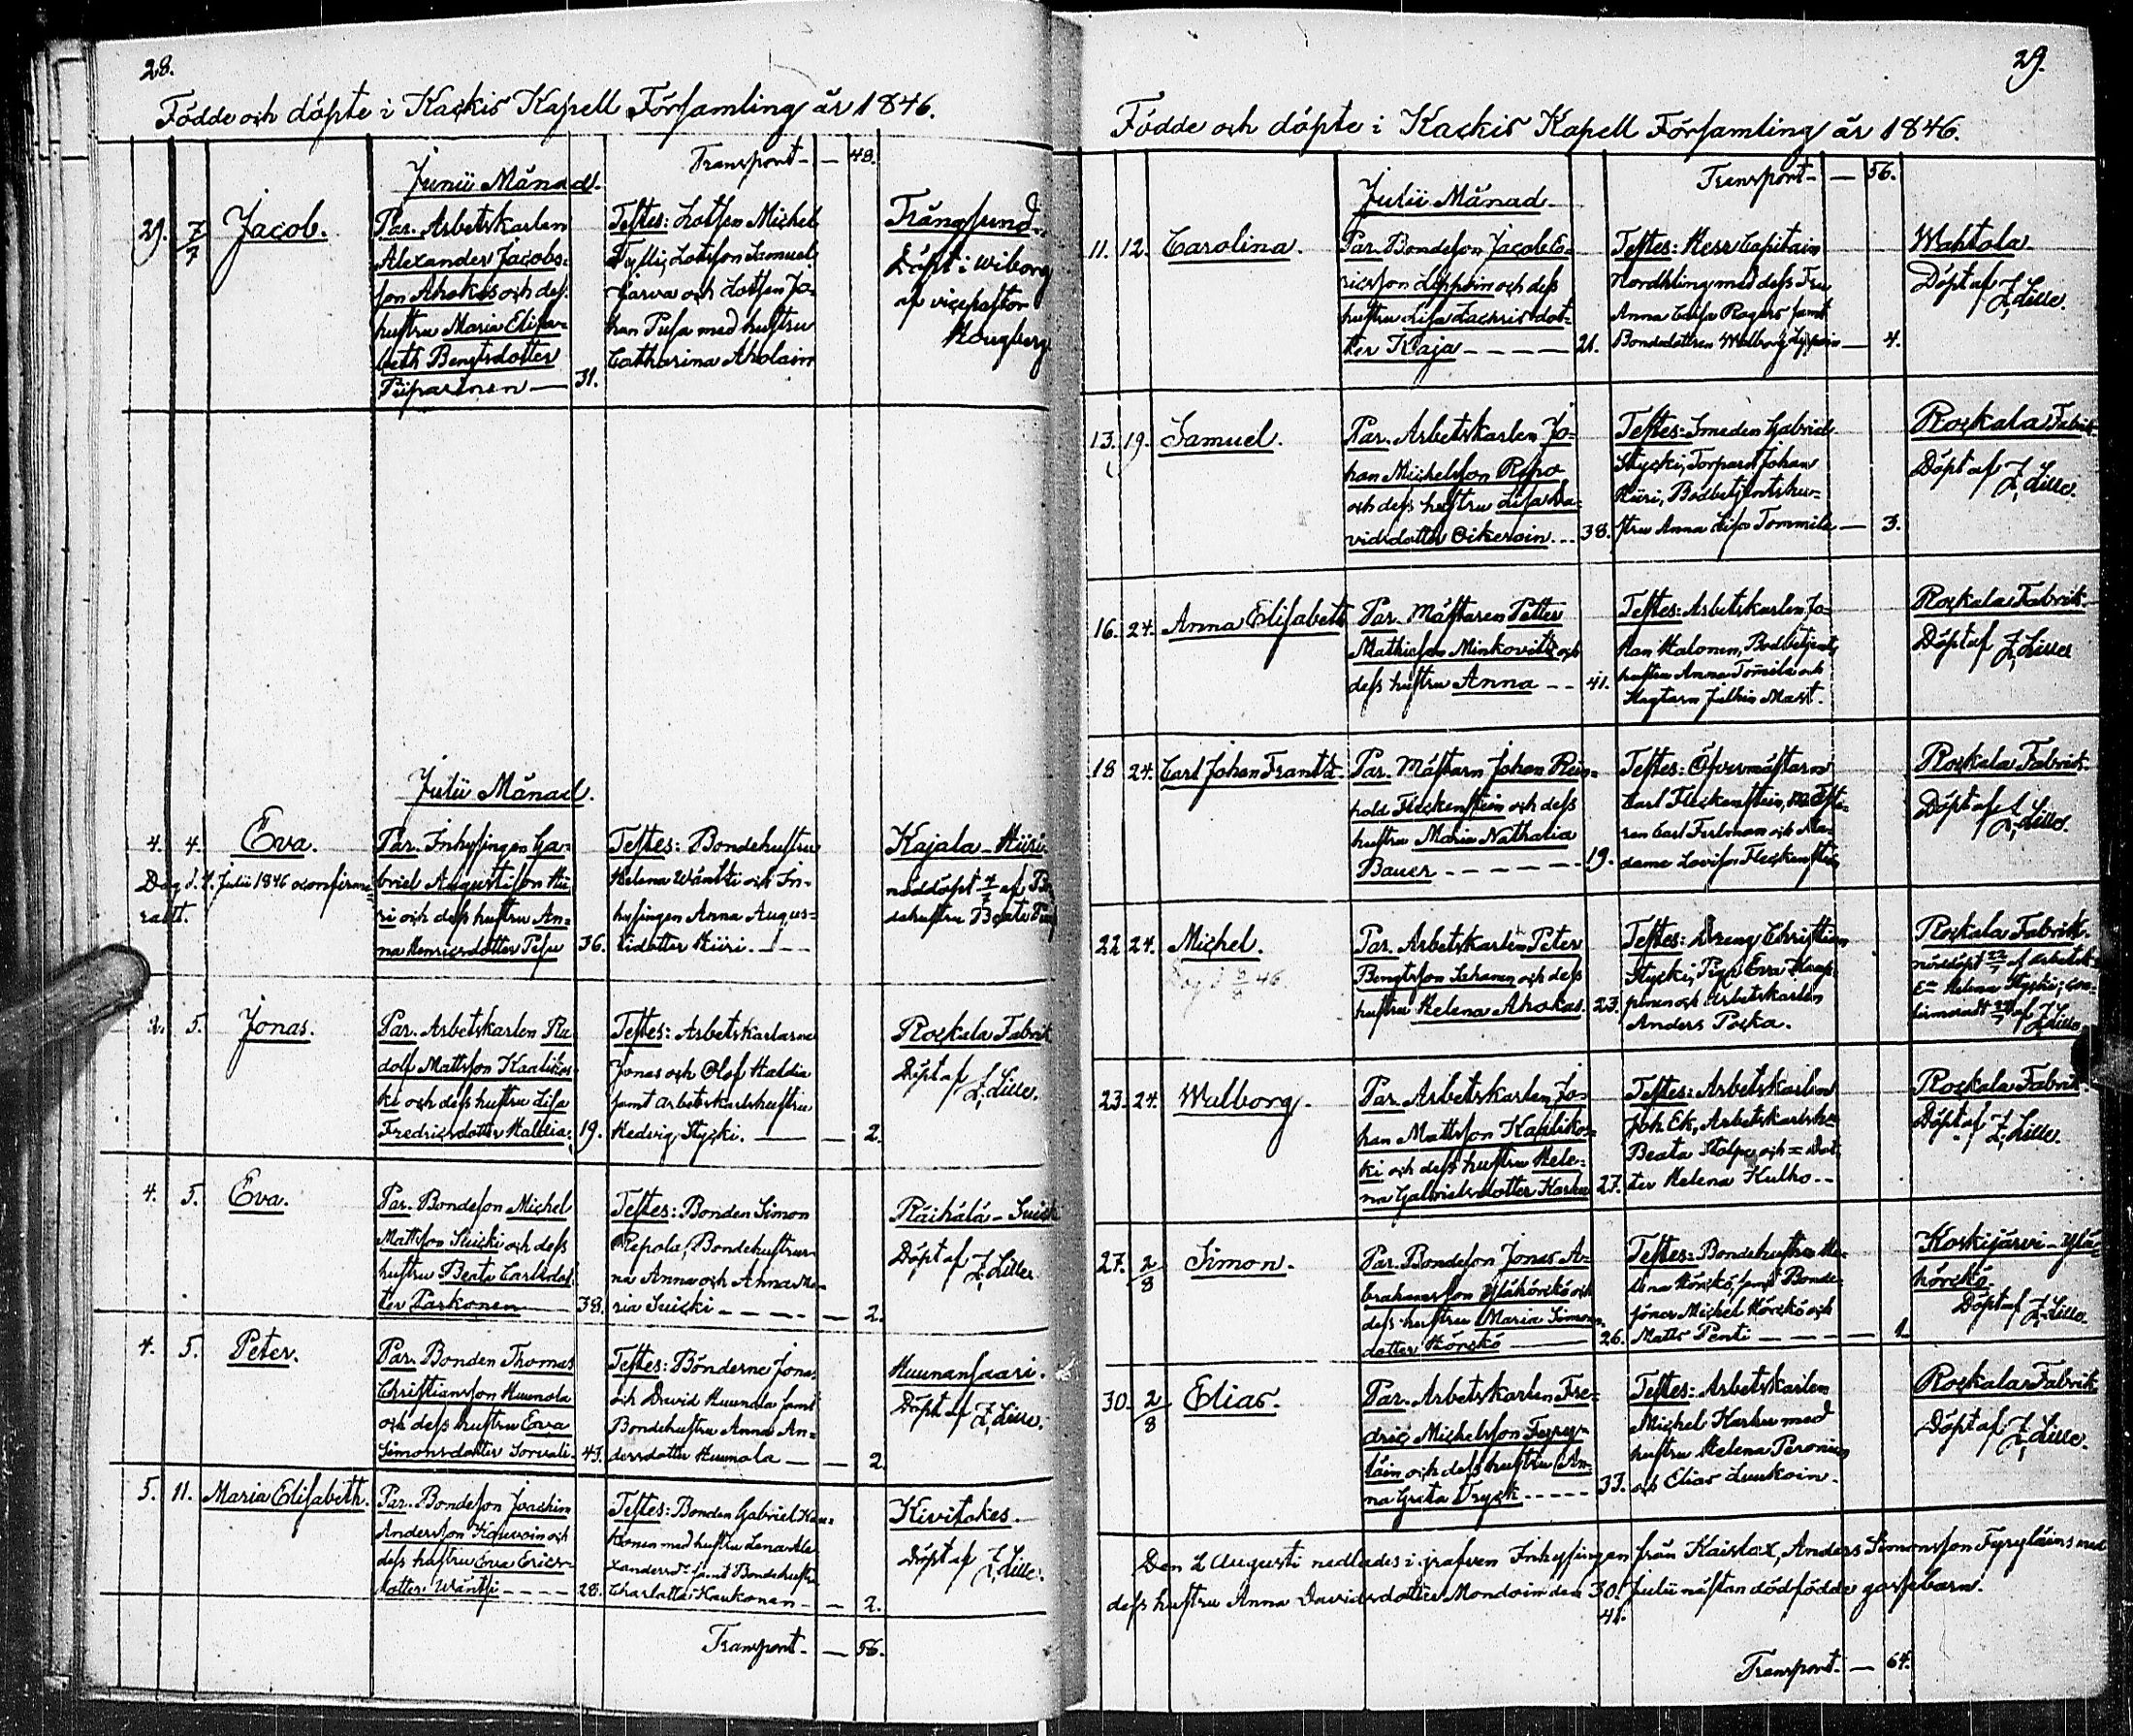 28.
Födde och döpte i Kackis Kapell Församling år 1846.
Transport - — 48.
Junii Månad.
29. 7/7 Jacob.
Par. Arbetskarlen
Alexander Jacobs-
son Ahokas och dess
hustru Maria Elisa-
beth Bengtsdotter
31.
Testes: Lotsen Michel
Lotsson Samuel
Jarva och Lotsen Jo-
han Pusa med hustru
Catharina Aholain
Trångsund.
Döpt i Wiborg
af vicepastor
Julii Månad.
4. 4. Eva.
Dog d. Julii 1846
Par. Inhysingen Ga-
briel Augustisson Kii-
ri och dess hustru An-
na Henricsdotter Pesu 36.
Testes: Bondehustru
Helena Wäntti och In-
hysingen Anna Augus-
tidotter Kiiri. — —
Kajala - Kiiri
nöddöpt 4/7 af Bon
dehustru Beata
2. 5. Jonas.
Par. Arbetskarlen Ru-
dolf Mattsson Kaalikos-
ki och dess hustru Lisa
Fredricsdotter Haldia. 19.
Testes: Arbetskarlarne
Jonas och Olof Haldia
samt arbetskarlshustru
Hedvig Stycki. — — 2.
Rockala Fabrik
Döpt af Z. Lille.
4. 5. Eva.
Par. Bondeson Michel
Mattsson Suicki och dess
hustru Beata Carlsdot-
ter Parkonen — 38.
Testes: Bonden Simon
Repola, Bondehustrur-
na Anna och Anna Ma-
ria Suicki - - - - — 2.
Räihälä - Suick
Döpt af Z. Lille.
4. 5. Peter.
Par. Bonden Thomas
Christiansson Huunola
och dess hustru Eva
Simonsdotter Sorvali. 43.
Testes: Bönderne Jonas
och David Huunola samt
Bondehustru Anna An-
dersdotter Huunola — — 2.
Huunansaari.
Döpt af Z. Lille.
5. 11. Maria Elisabeth.
Par. Bondeson Joachim
Andersson Kauvoin och
dess hustru Eva Erics-
dotter Wäntti - - - - 28.
Testes: Bonden Gabriel Kau-
konen med hustru Lena Ale-
xandersdr samt Bondehustru
Charlotta Kaukonen — — 2.
Kivitokes.
Döpt af Z. Lille.
Transport - — 56.
29.
Födde och döpte i Kackis Kapell Församling år 1846.
Transport - — 56.
Julii Månad
11. 12. Carolina.
Par. Bondeson Jacob E-
ricsson Lyppoin och dess
hustru Lisa Zachrisdot-
ter Kaja - - - - — 21.
Testes: Herr Capitain
Nordhling med dess Fru
Anna Casa Rogers samt
Bondedottren Walborg Lyppoin — 4.
Wahtola
Döpt af Z. Lille.
13. 19. Samuel.
Par. Arbetskarlen Jo-
han Michelsson Repo
och dess hustru Lisa Da-
vidsdotter Oikeroin. - - 38.
Testes: Smeden Gabriel
Stycki, Torparn Johan
Kiiri, Bodbetjentshu-
stru Anna Lisa Tommila — 3.
Rockala Fabrik
Döpt af Z. Lille.
16. 24. Anna Elisabeth
Par. Mästaren Petter
Mathiesson Minkovitz och
dess hustru Anna - - 41.
Testes: Arbetskarlen Jo-
han Halonen, Bodbetjents
hustru Anna Tommila och
Rockala Fabrik.
Döpt af Z. Lille
18 24. Carl Johan Frantz.
Par. Mästarn Johan Rein-
hold Fleckenstein och dess
hustru Maria Nathalia
Bauer - - - - - 19.
Testes: Öfvermästarn
Carl Fleckenstein, Mästa-
ren Carl och Ma-
dame Lovisa Fleckenstein
Rockala Fabrik.
Döpt af Z. Lille.
22 24. Michel.
Dog d 2/8 46
Par. Arbetskarlen Peter
Bengtsson och dess
hustru Helena Ahokas 23.
Testes: Dreng Christian
Stycki, Piga Eva
och Arbetskarlen
Anders Pocka.
Rockala Fabrik.
nöddöpt 22/7 af arbetsk
Helena Stycki, con-
firmerat 24/7 af Z. Lille
23. 24. Walborg.
Par. Arbetskarlen Jo-
han Mattsson Kaalikos-
ki och dess hustru Hele-
na Gabrielsdotter Karhu 27.
Testes: Arbetskarlen
Joh. Ek, Arbetskarlshu
Beata Stolpe och = dot
ter Helena Kulho - -
Rockala Fabrik.
Döpt af Z. Lille.
27. 2/8 Simon.
Par. Bondeson Jonas A-
brahamsson Ylähörckö och
dess hustru Maria Simons-
dotter Hörckö — 26.
Testes: Bondehustru He-
lena Hörckö, samt Bonde-
söner Michel Hörckö och
Matts Penti — - - - — 1.
Koskijärvi - Ylä-
hörckö.
Döpt af Z. Lille.
30. 2/8 Elias.
Par. Arbetskarlen Fre-
dric Michelsson Fyyry-
läin och dess hustru An-
na Greta Tryck - - - - 33.
Testes: Arbetskarlen
Michel Karhu med
hustru Helena Peronius
och Elias Luukoin.
Rockala Fabrik.
Döpt af Z. Lille.
Den 2 Augusti nedlades i grafven Inhysingen från Kaislax, Anders Simonsson Fyryläins med
dess hustru Anna Davidsdotter Mondoin den 30 Julii nästan dödfödde gossebarn.
41.
Transport - — 64.